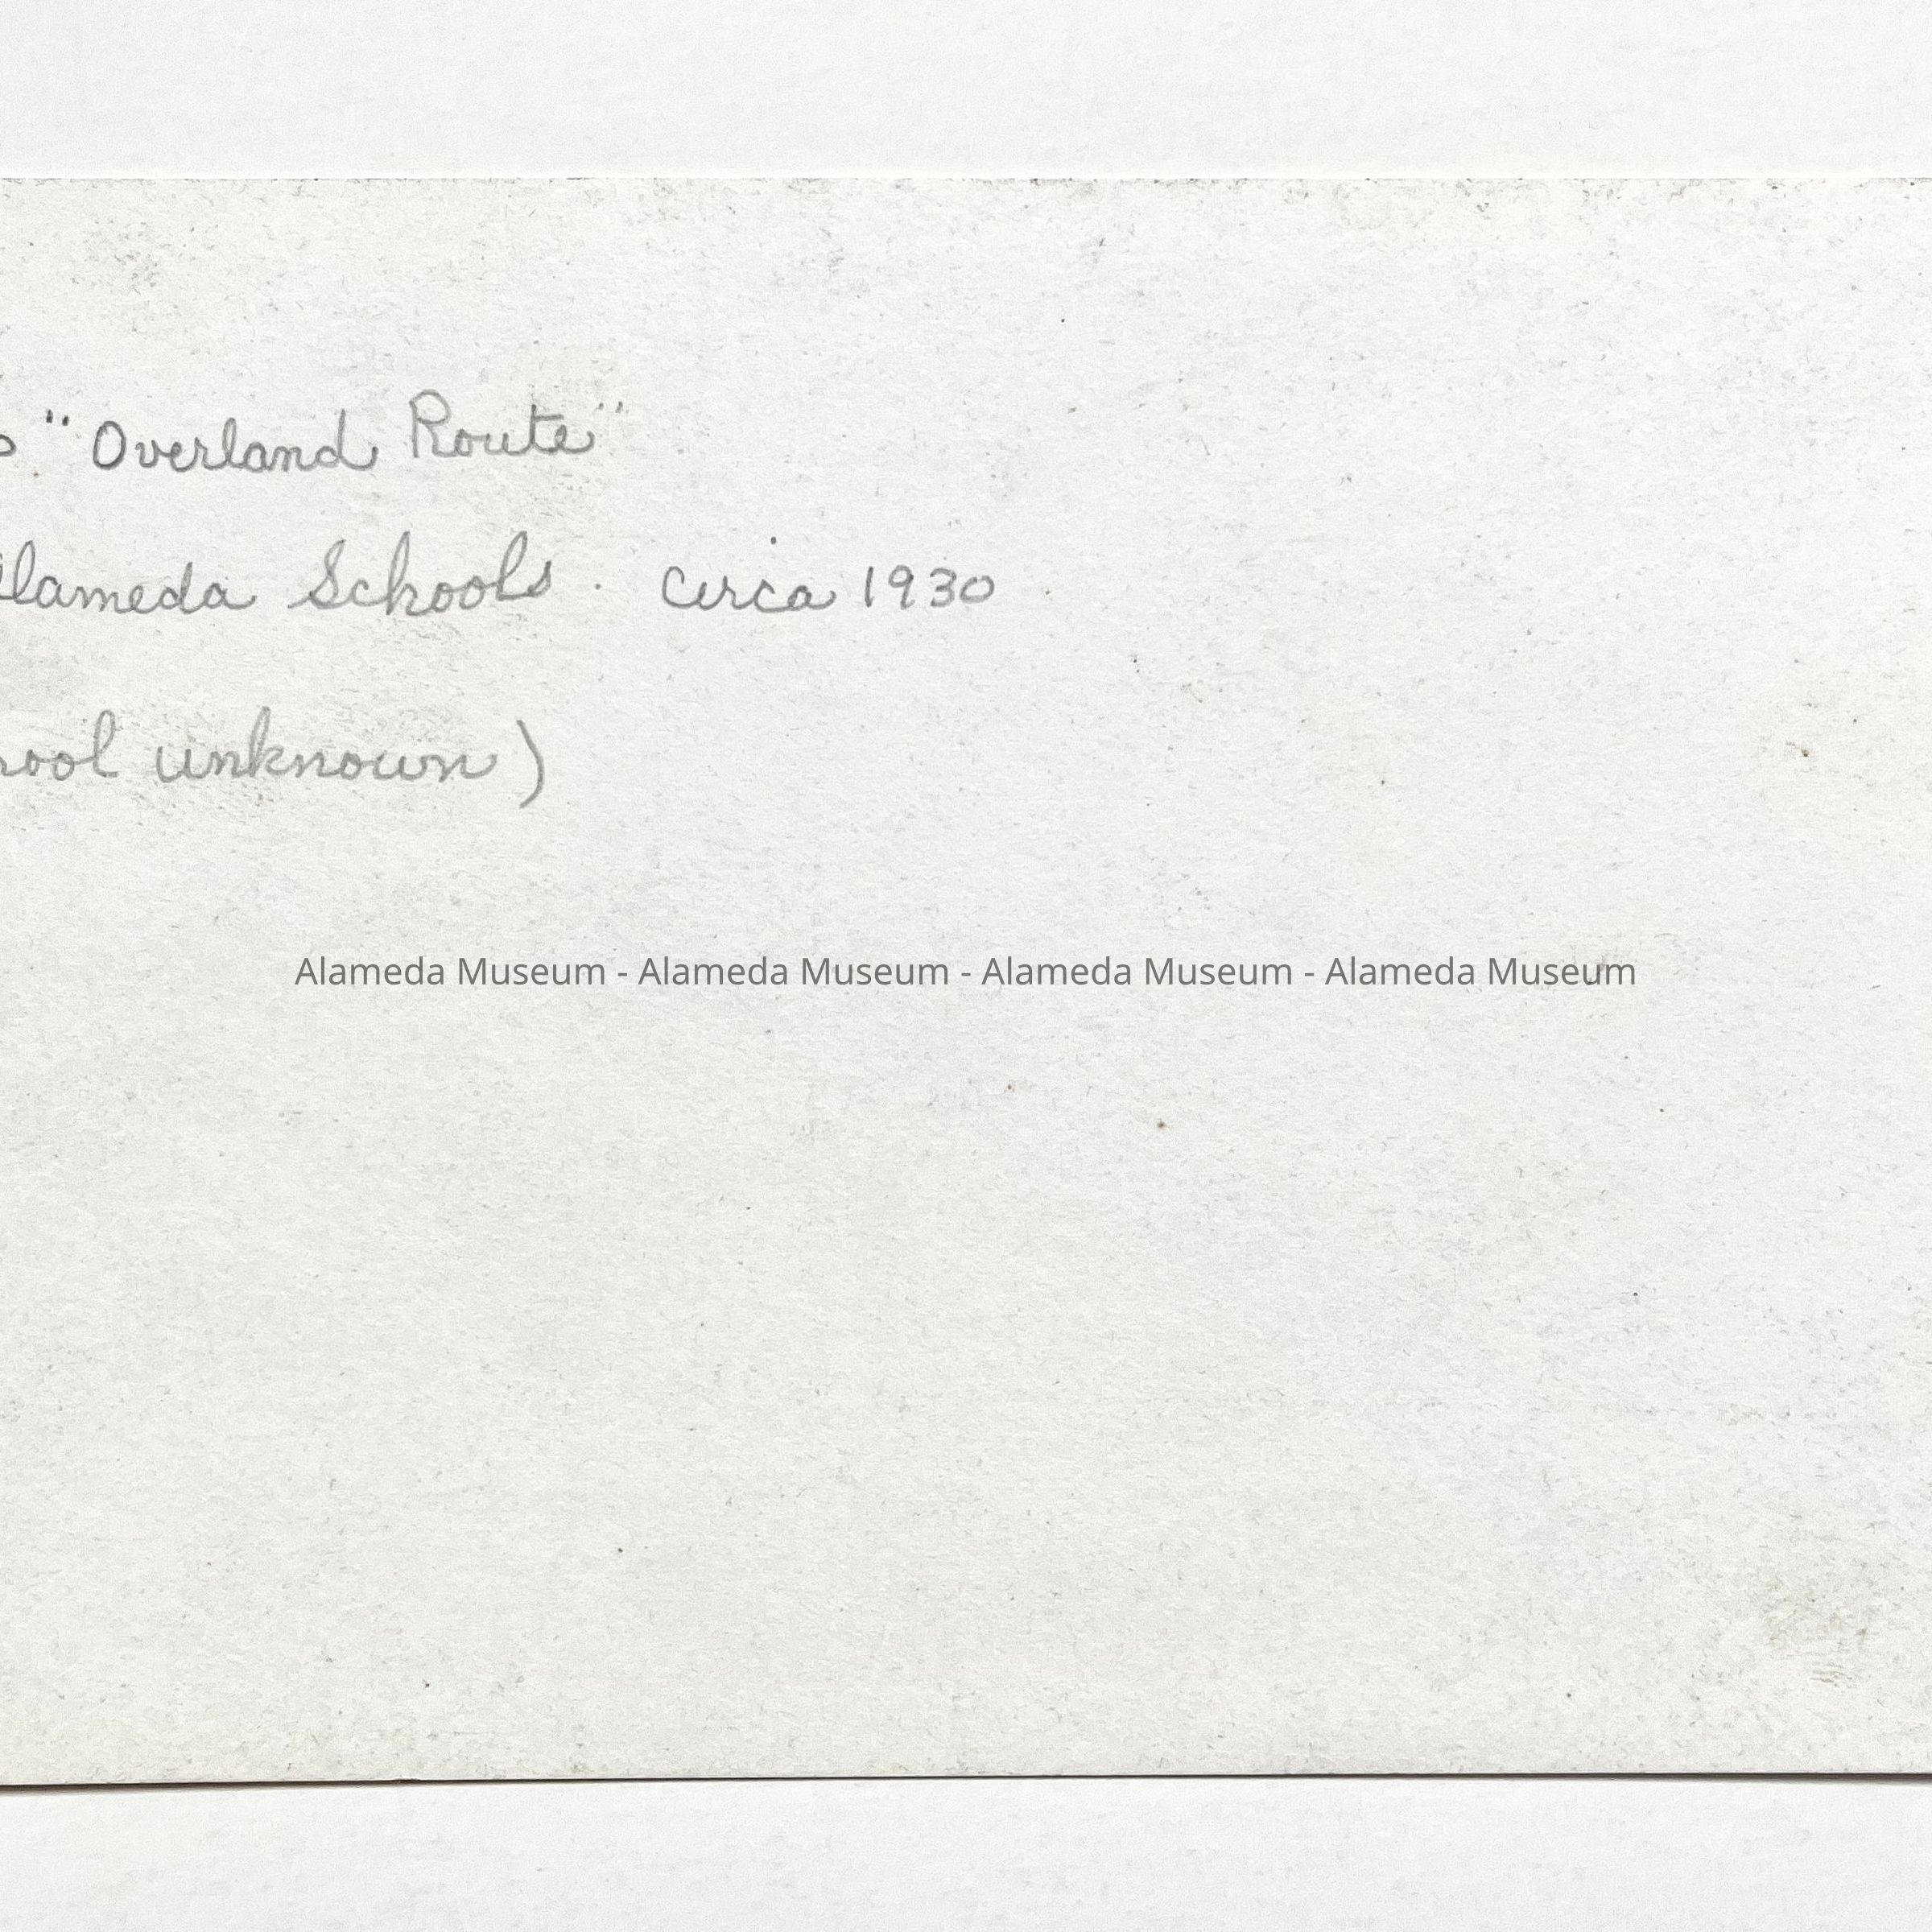 "Overland Route"
lameda Schools. Circa 1930
ool unknown)
Alameda Museum - Alameda Museum - Alameda Museum - Alameda Museum